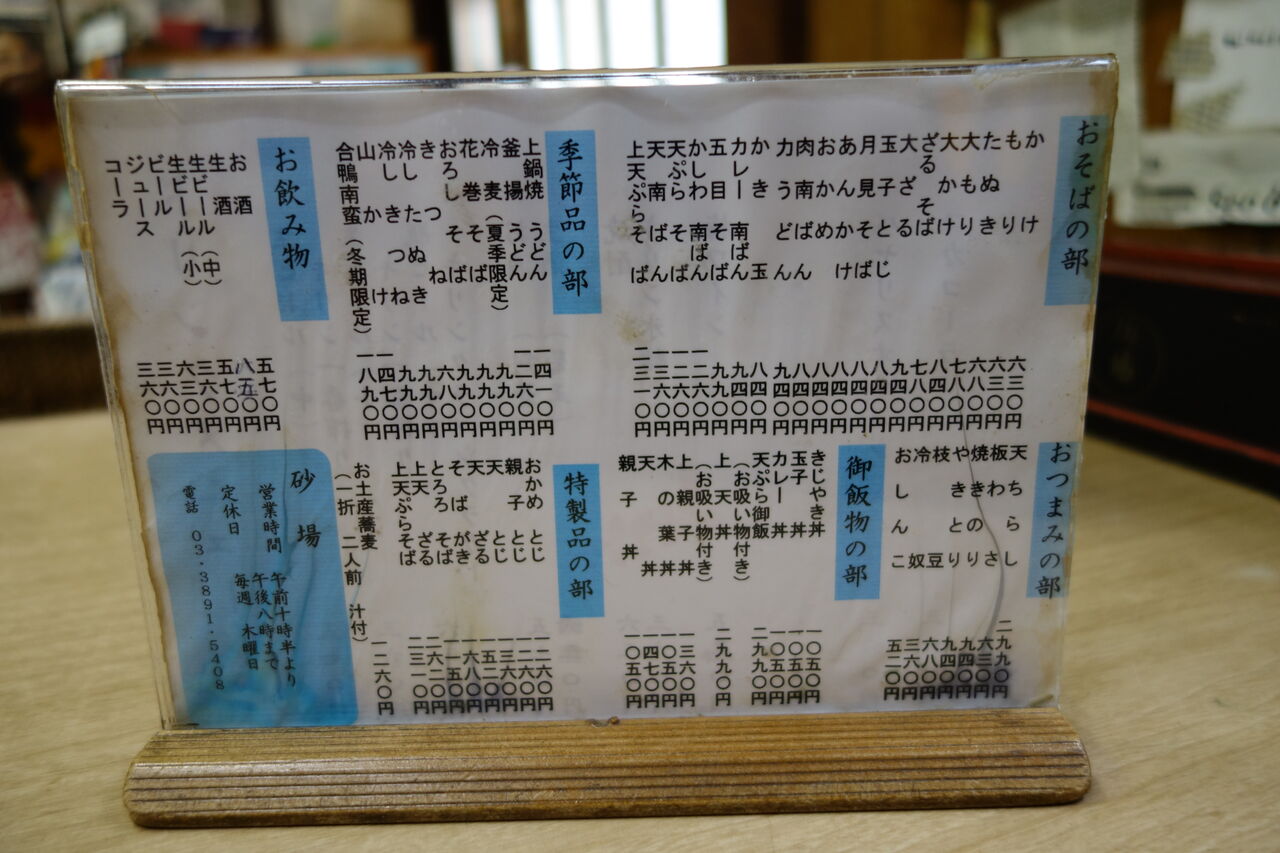 おそばの部
かけ 六三〇円
もり 六三〇円
たぬき
大もり
大かけ
ざるそば 七八〇円
大ざる 九〇〇円
玉子とじ 八四〇円
月見そば 八四〇円
あんかけ 八四〇円
おかめ 八四〇円
肉南ばん 八四〇円
力うどん 九四〇円
かき玉 八四〇円
カレー南ばん 九四〇円
五目そば 九九〇円
かしわ南ばん 一二六〇円
天ぷらそば
天南ばん
上天ぷらそば 二三一〇円
季節品の部
上鍋焼うどん
釜揚うどん
冷麦(夏季限定) 九九〇円
花巻そば 九九〇円
おろしそば 九九〇円
きつね 六八〇円
冷したぬき 九九〇円
冷しきつね 九九〇円
山かけ 一四七〇円
合鴨南蛮(冬期限定) 一八九〇円
お飲み物
お酒 五七〇円
生酒 八五〇円
生ビール(中) 五七〇円
生ビール(小) 三六〇円
ビール 六三〇円
ジュース 三六〇円
コーラ 三六〇円
おつまみの部
天ちらし 二九〇〇円
板わさ 六三〇円
焼のり 九四〇円
やきとり 九四〇円
枝豆 六八〇円
冷奴 三〇〇円
おしんこ 五二〇円
御飯物の部
きじやき丼 一五五〇円
玉子丼 一〇五〇円
カレー丼 一〇五〇円
天ぷら御飯 二九九〇円
(お吸い物付き)
上天丼 二九九〇円
(お吸い物付き)
上親子丼 三六〇円
木の葉丼 一〇五〇円
天丼 一四七〇円
親子丼 一〇五〇円
特製品の部
おかめとじ
親子とじ
天とじ
天ざる
そばがき
とろろそば
上天ざる 二六二〇円
上天ぷらそば 二三一〇円
お土産蕎麦
(一折 二人前 汁付) 一二六〇円
砂場
営業時間 午前十時半より
午後八時まで
定休日 毎週 木曜日
電話 03・3891・5408